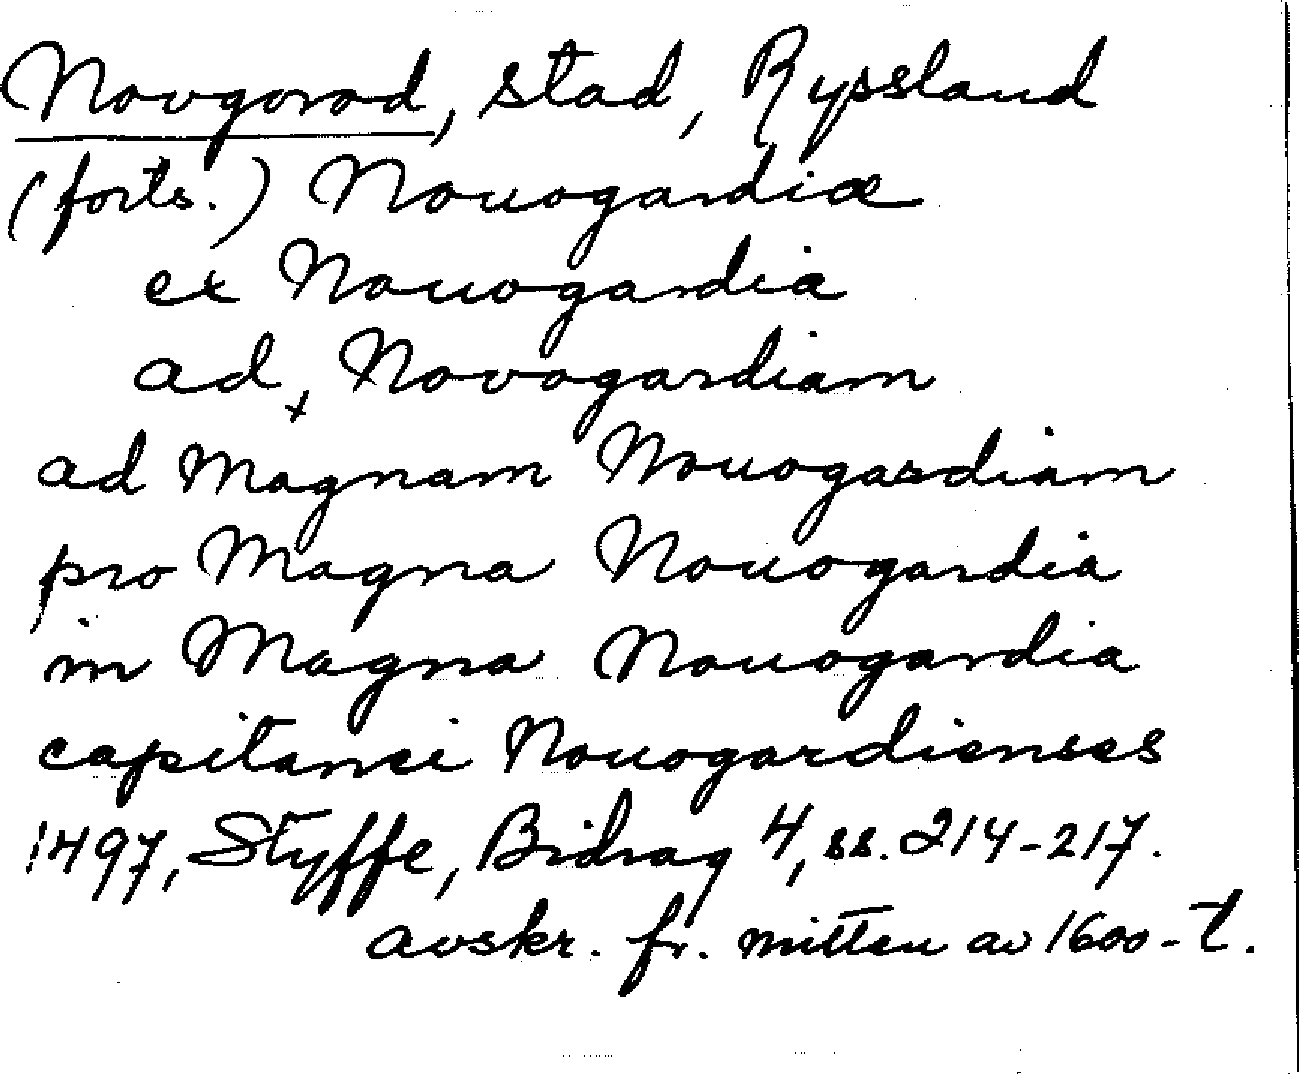 Novgorod, stad, Ryssland
(forts.) Nouogardiæ
ex Nouogardia
ad + Novogardiam
ad Magnam Nouogardiam
pro Magna Nouogardia
in Magna Nouogardia
capitanei Nouogardienses
1497, Styffe, Bidrag 4, ss. 214-217.
avskr. fr. mitten av 1600-t.